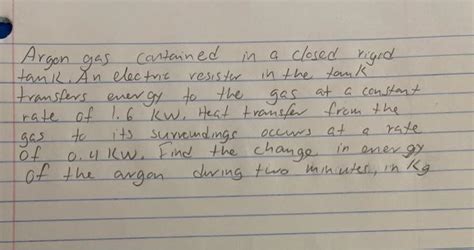 Argon gas contained in a closed rigid
tank. An electric resistor in the tank
transfers energy to the gas at a constant
rate of 1.6 KW. Heat transfer from the
gas to its surroundings occurs at a rate
of 0.4 KW. Find the change in energy
of the argon during two minutes, in Kg